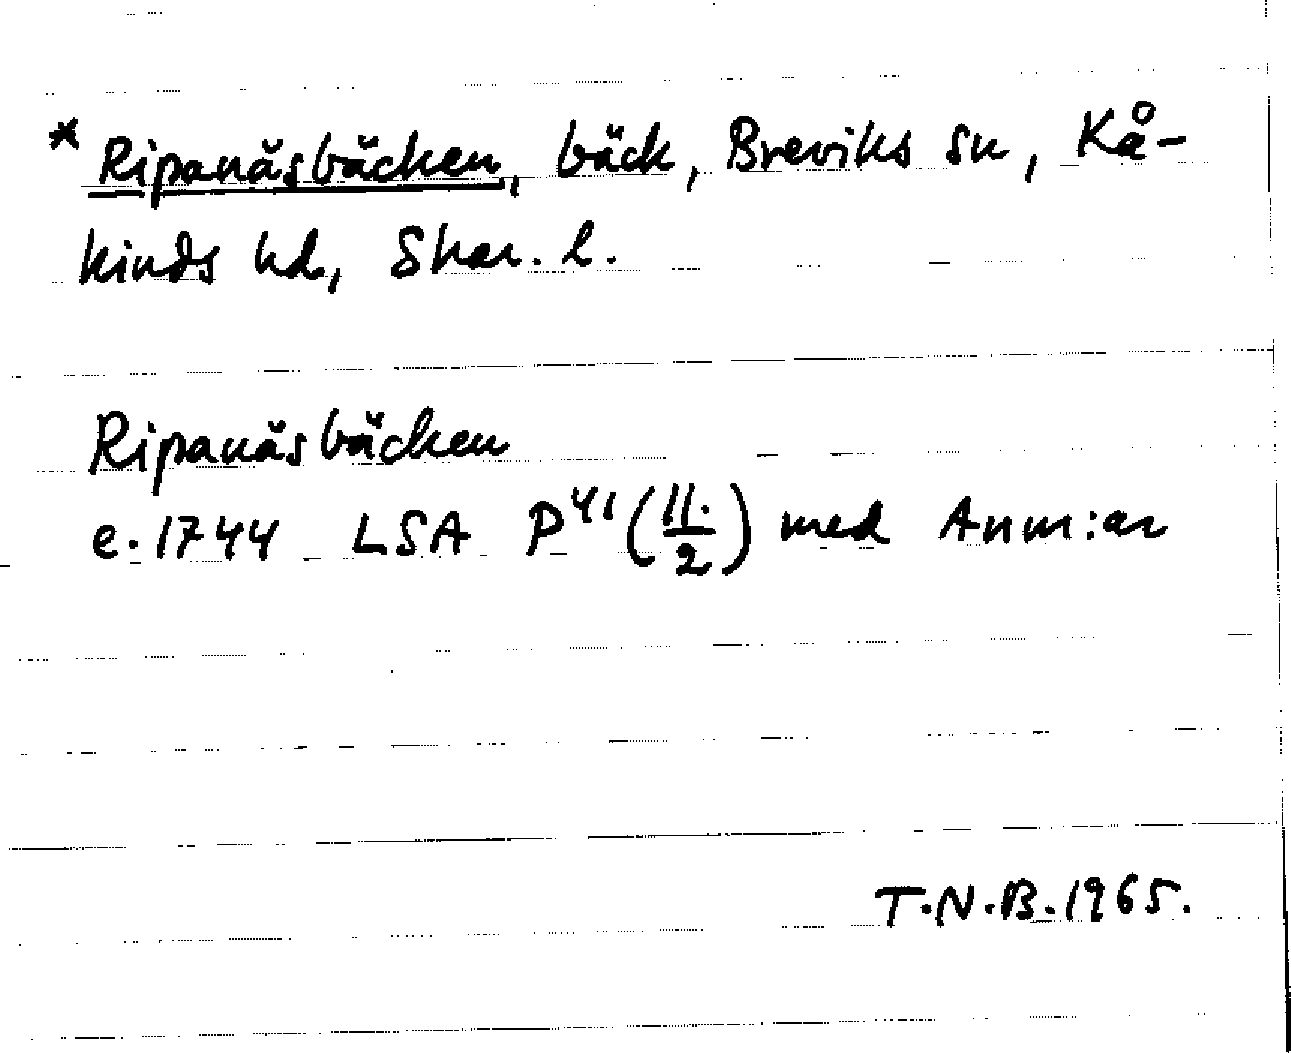 * Ripanäsbäcken, bäck, Breviks sn, Kå-
kinds hd, Skar. l.
Ripanäsbäcken
e. 1744 LSA P41 (11./2) med Anm:ar
T.N.B. 1965.